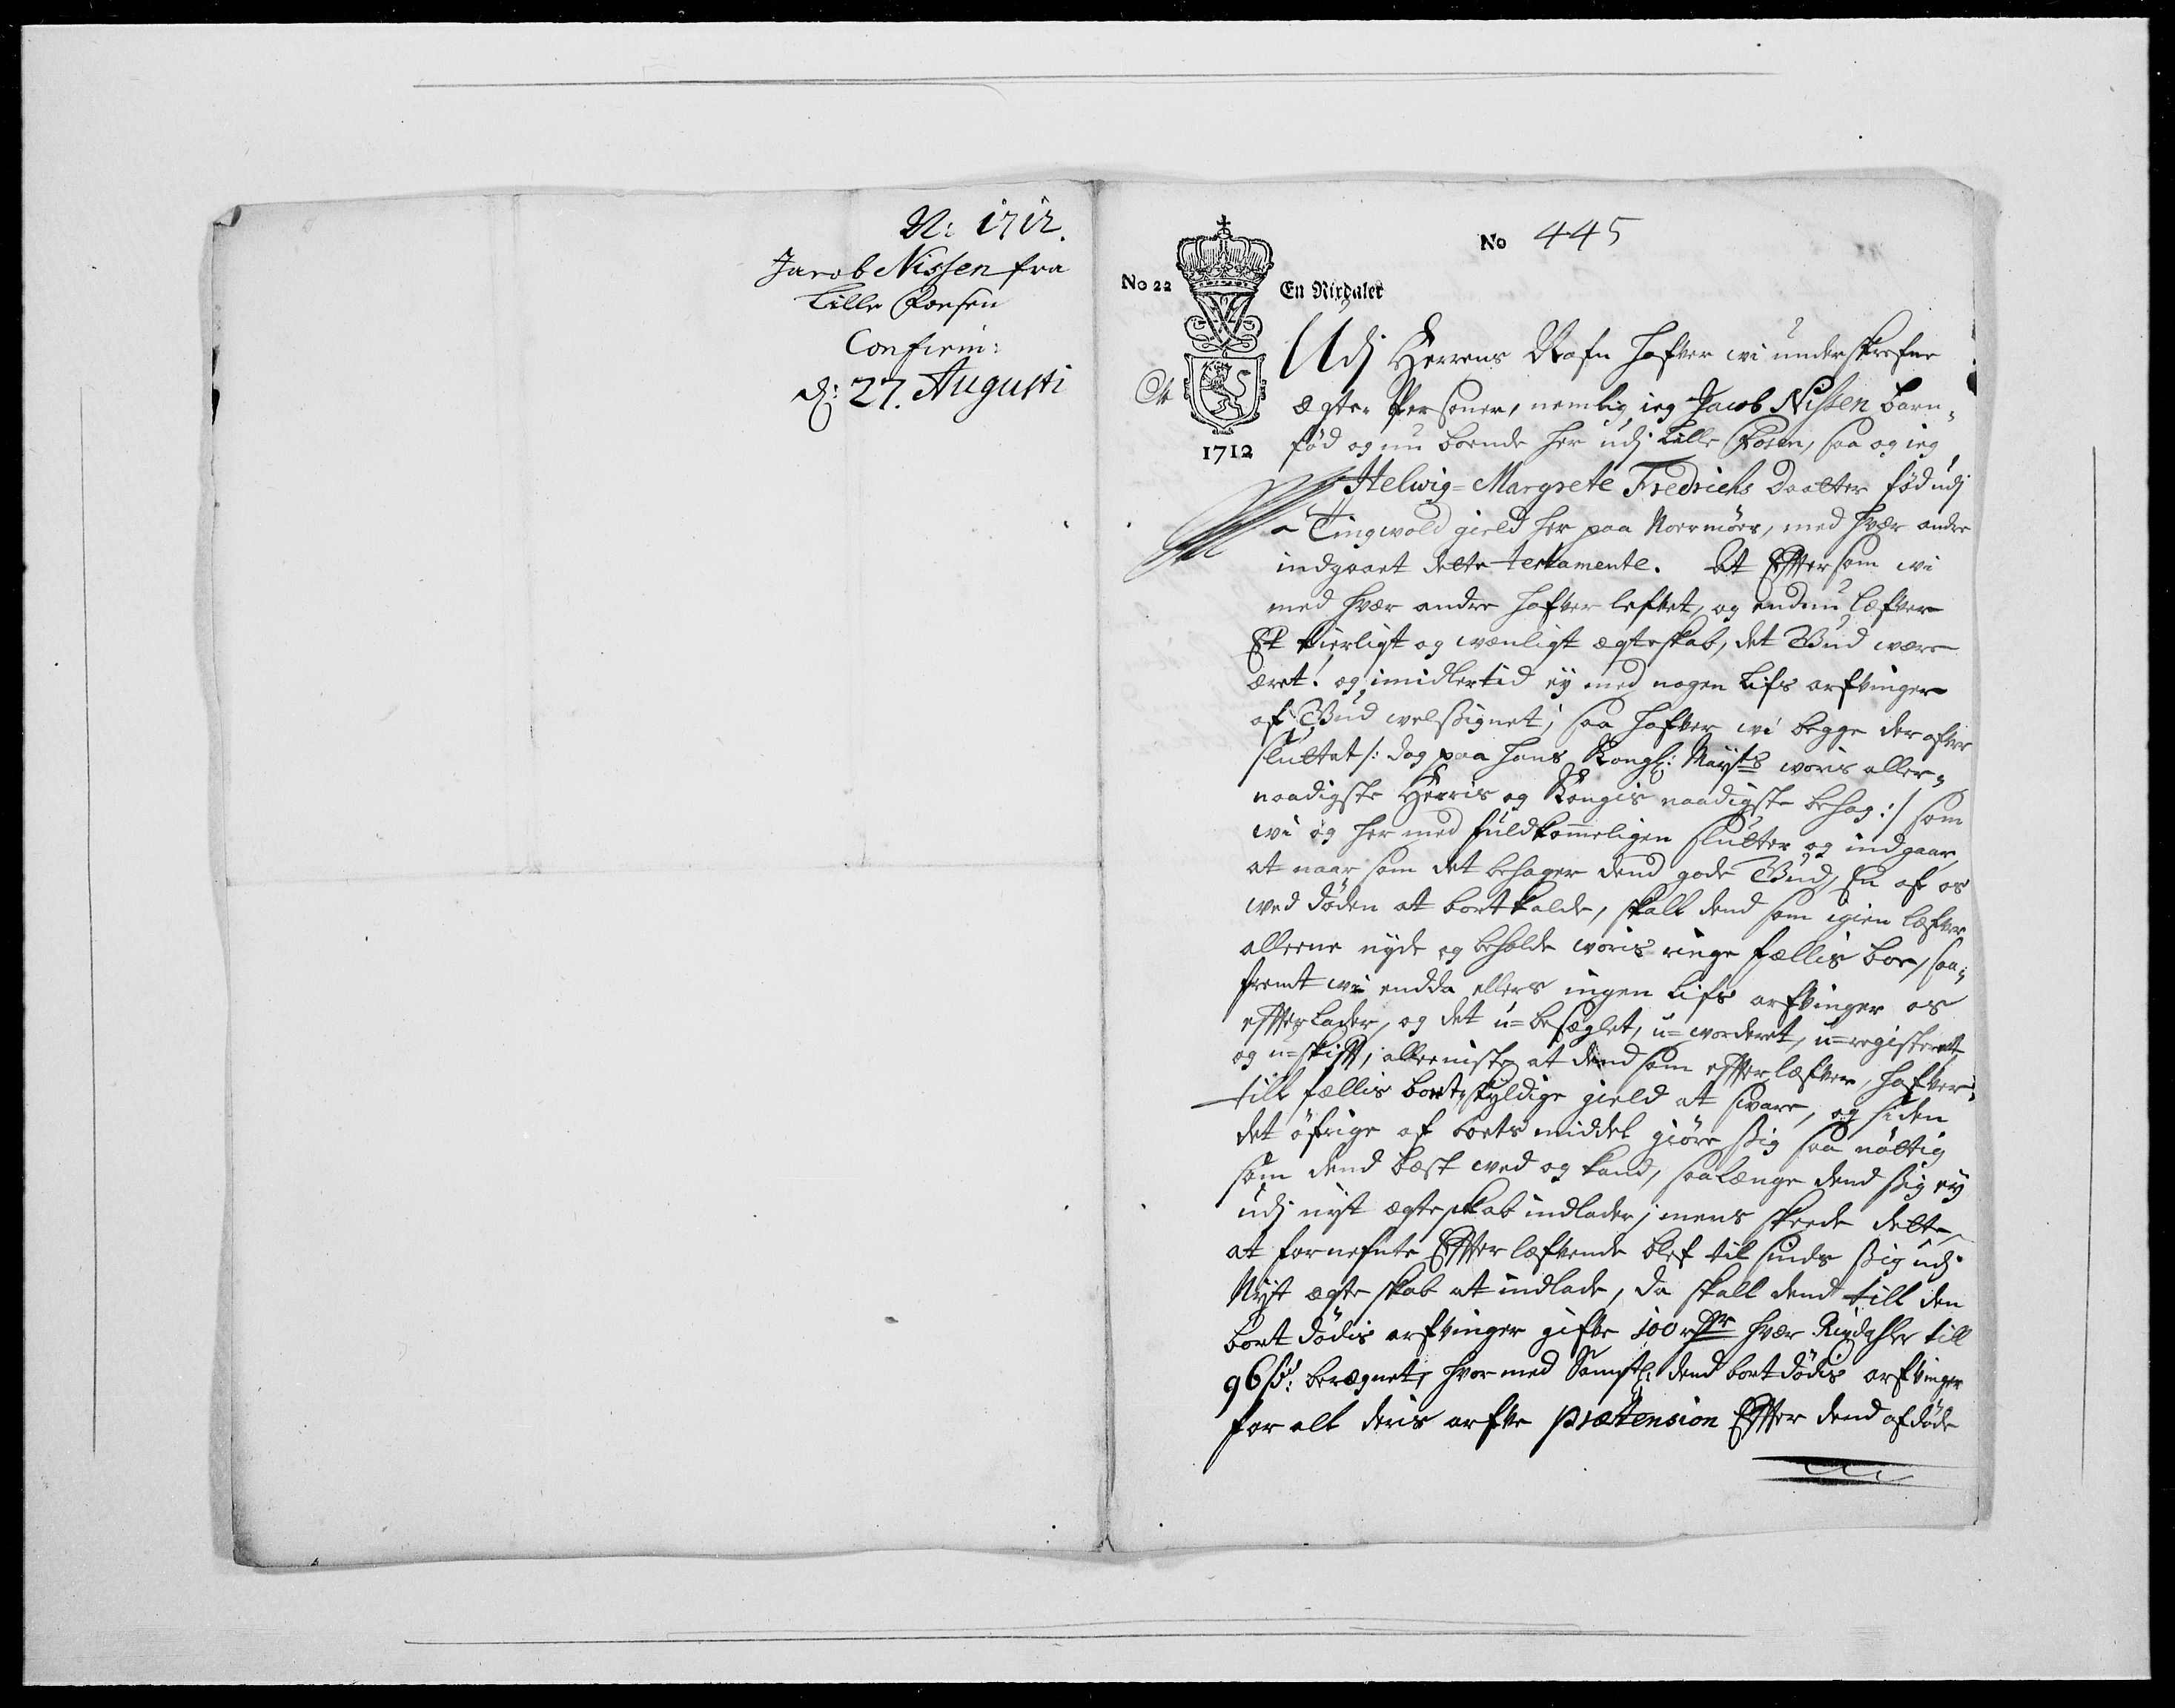 N: 1712.
Jacob Nissen fra
Lille Foesen
Confirm:
d: 27. Augusti
No 445
No 22
En Rixdaler
1712
Udj Herrens Nafn hafver wi underskrefne
ægte Personer, nemlig ieg Jacob Nissen barn-
fød og nu boende her udj Lille Fosen, saa og ieg
Helwig=Margrete Fredrichs Daatter fød udj
Tingwold gield her paa Noermøer, med hver andre
indgaaet dette testamente. At Effter som wi
med hver andre hafver lefvet, og endnu lefver
Et kierligt og wenligt ægteskab, det Gud wære
æret. og imidlertid ey med nogen Lifs arfvinger
af Gud welsignet; saa hafver wi begge der ofver
sluttet /: dog paa hans Kongl: Mayts woris aller-
naadigste Herris og Kongis naadigste behag :/ som
wi og her med fuldkommeligen slutter og indgaar,
at naar som det behager dend gode Gud, En af os
wed døden at bortkalde, skall dend som igien lefver
alleene nyde og beholde woris ringe fællis boe, saa-
fremt wi endda ellers ingen Lifs arfvinger os
effterlader, og det u=beseglet, u=worderet, u=registeret
og u=skifft, alleeniste at dend som effterlefver, hafver
till fællis boets skyldige gield at svare, og siden
det øfrige af boets middel giøre sig saa nøttig
som dend best wed og kand, saalænge dend sig ey
udj nyt ægteskab indlader; mens skeede dette
at fornefnte Effterlefvende blef til sinds sig udj
Nyt ægteskab at indlade, da skall dend till den
bort dødis arfvinger gifve 100 rdr hver Rixdahler till
96 s: beregnet, hvor med Samptl: dend bortdødis arfvinger
for alt deris arfve prætension Effter dend afdøde